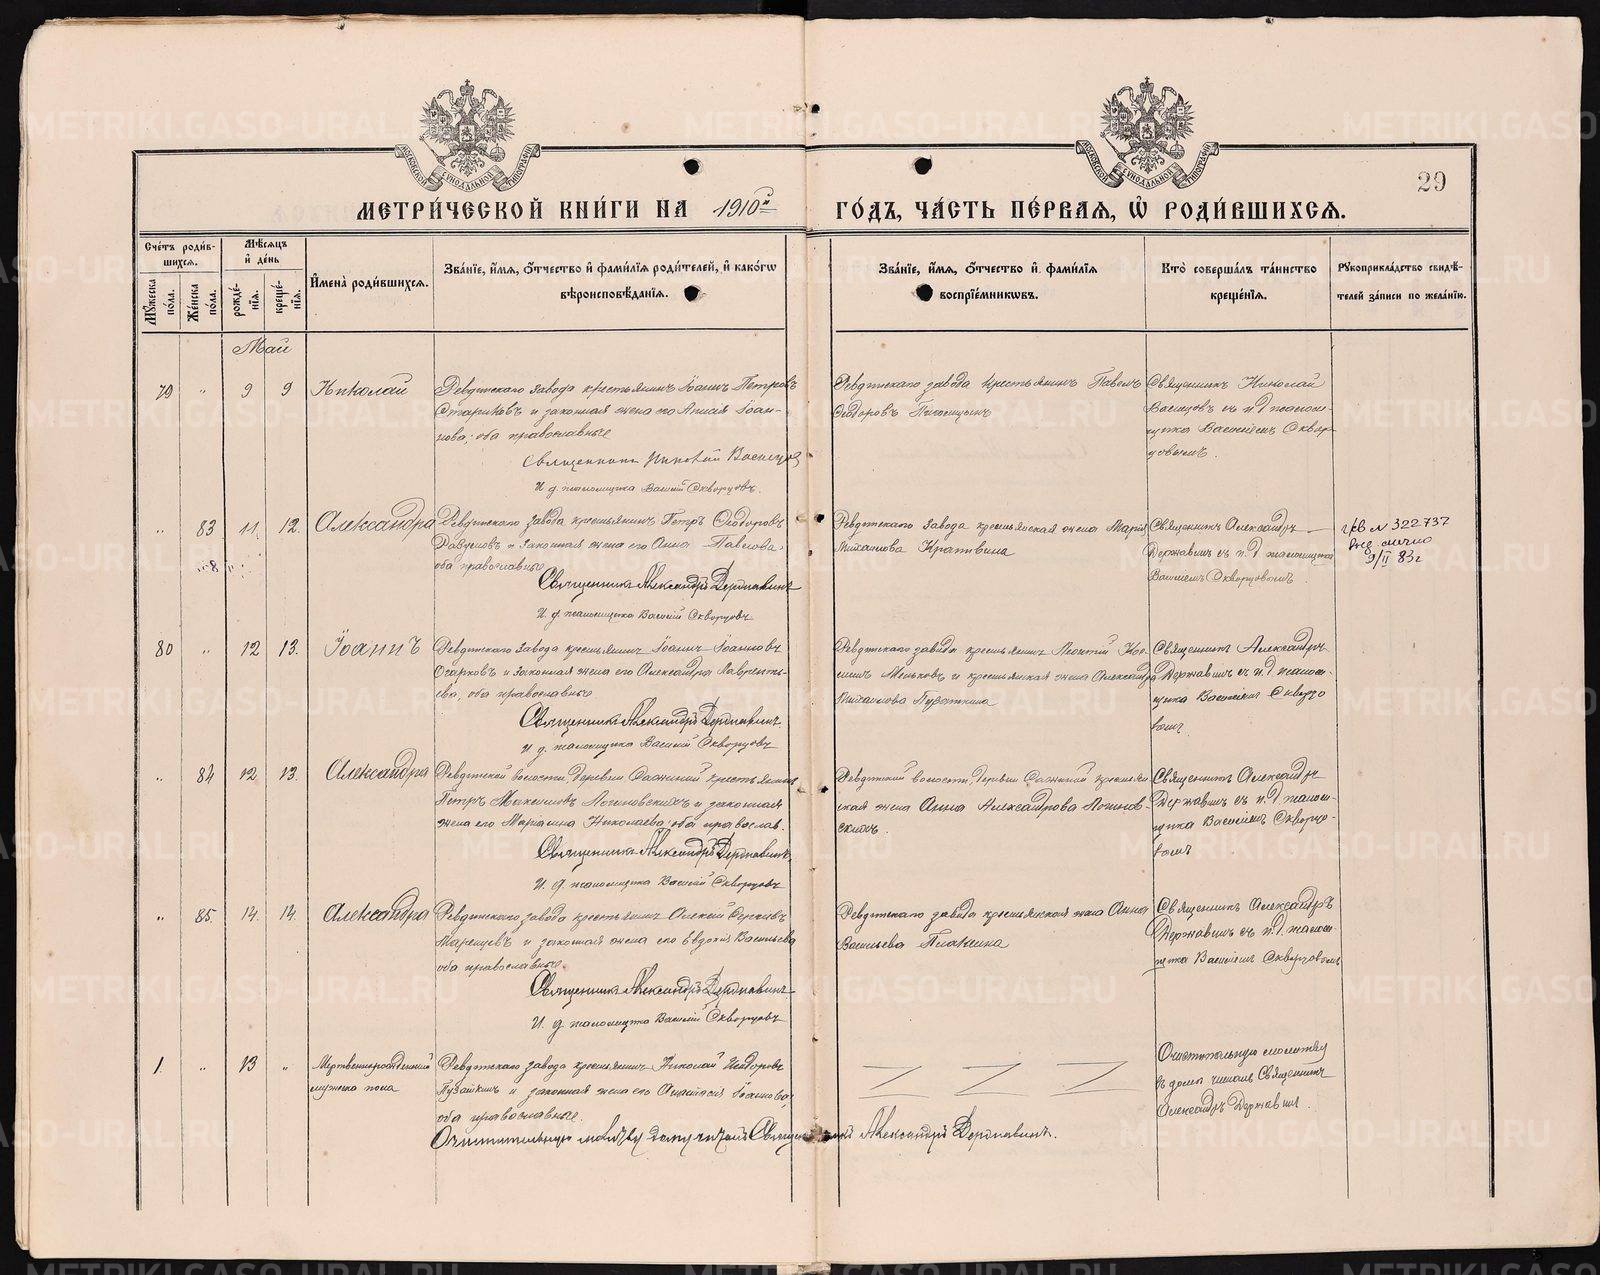 МЕТРИ́ЧЕСКОЙ КНИ́ГИ НА 1910й ГО́ДЪ, ЧА́СТЬ ПЕ́РВАЯ, Ѡ РОДИ́ВШИХСЯ.
29
Сче́тъ роди́в-
шихся.
Мꙋжеска по́ла.
Же́нска по́ла.
Мѣ́сяцъ
и҆ де́нь
рожде́-
нїя.
креще́-
нїя.
И҆мена̀ роди́вшихся.
Зва́нїе, и҆́мя, ѻ҆́тчество и҆ фами́лїя роди́телей, и҆ како́гѡ
вѣроисповѣ́данїя.
Зва́нїе, и҆́мя, ѻ҆́тчество и҆ фами́лїя
воспрїе́мникѡвъ.
Кто̀ соверша́лъ та́инство
креще́нїя.
Рꙋкоприкла́дство свидѣ́-
телей за́писи по жела́нїю.
Май
79 " 9 9 Николай
Ревдтскаго завода крестьянинъ Іоаннъ Петровъ
Стариковъ и законная жена его Іоан-
нова, оба православные
Священникъ Николай
И. д. псаломщика Василій Скворцовъ.
Ревдтскаго завода крестьянинъ Павелъ
Ѳеодоровъ
Священникъ Николай
съ и. д. псалом-
щика Василіемъ Сквор-
цовымъ.
" 83 11. 12. Александра
Ревдтскаго завода крестьянинъ Петръ Ѳеодоровъ
и законная жена его Анна Павлова,
оба православные
Священникъ Александръ Державинъ
И. д. псаломщика Василій Скворцовъ
Ревдтскаго завода крестьянская жена Марія
Михайлова Крапивина
Священникъ Александръ
Державинъ съ и. д. псаломщика
Василіемъ Скворцовымъ.
№ 322737
9/II 83г
80 " 12 13. Іоаннъ
Ревдтскаго завода крестьянинъ Іоаннъ Іоанновъ
и законная жена его Александра Лавренть-
ева, оба православные
Священникъ Александръ Державинъ
И. д. псаломщика Василій Скворцовъ
Ревдтскаго завода крестьянинъ Леонтій
и крестьянская жена Александра
Михайлова
Священникъ Александръ
Державинъ съ и. д. псалом-
щика Василіемъ Скворцо
вымъ.
" 84 12 13. Александра
Ревдтской волости, деревни крестьянинъ
Петръ Максимовъ Логиновскихъ и законная
жена его Маріанна Николаева, оба православ.
Священникъ Александръ Державинъ
И. д. псаломщика Василій Скворцовъ
Ревдтской волости, деревни крестьян
ская жена Анна Александрова Логинов-
скихъ.
Священникъ Александръ
Державинъ съ и. д. псалом-
щика Василіемъ Скворцо-
вымъ
" 85. 14. 14. Александра
Ревдтскаго завода крестьянинъ Алексій Сергіевъ
и законная жена его Евдокія Васильева
оба православные.
Священникъ Александръ Державинъ
И. д. псаломщика Василій Скворцовъ
Ревдтскаго завода крестьянская жена Анна
Васильева
Священникъ Александръ
Державинъ съ и. д. псалом-
щика Василіемъ Скворцовымъ
1 " 13 " Мертворожденный
мужска пола
Ревдтскаго завода крестьянинъ Николай
и законная жена его Анастасія Іоаннова,
оба православные.
Очистительную молитву дому читалъ Священникъ Александръ Державинъ.
Очистительную молитву
въ домѣ читалъ Священникъ
Александръ Державинъ.
METRIKI.GASO-URAL.RU